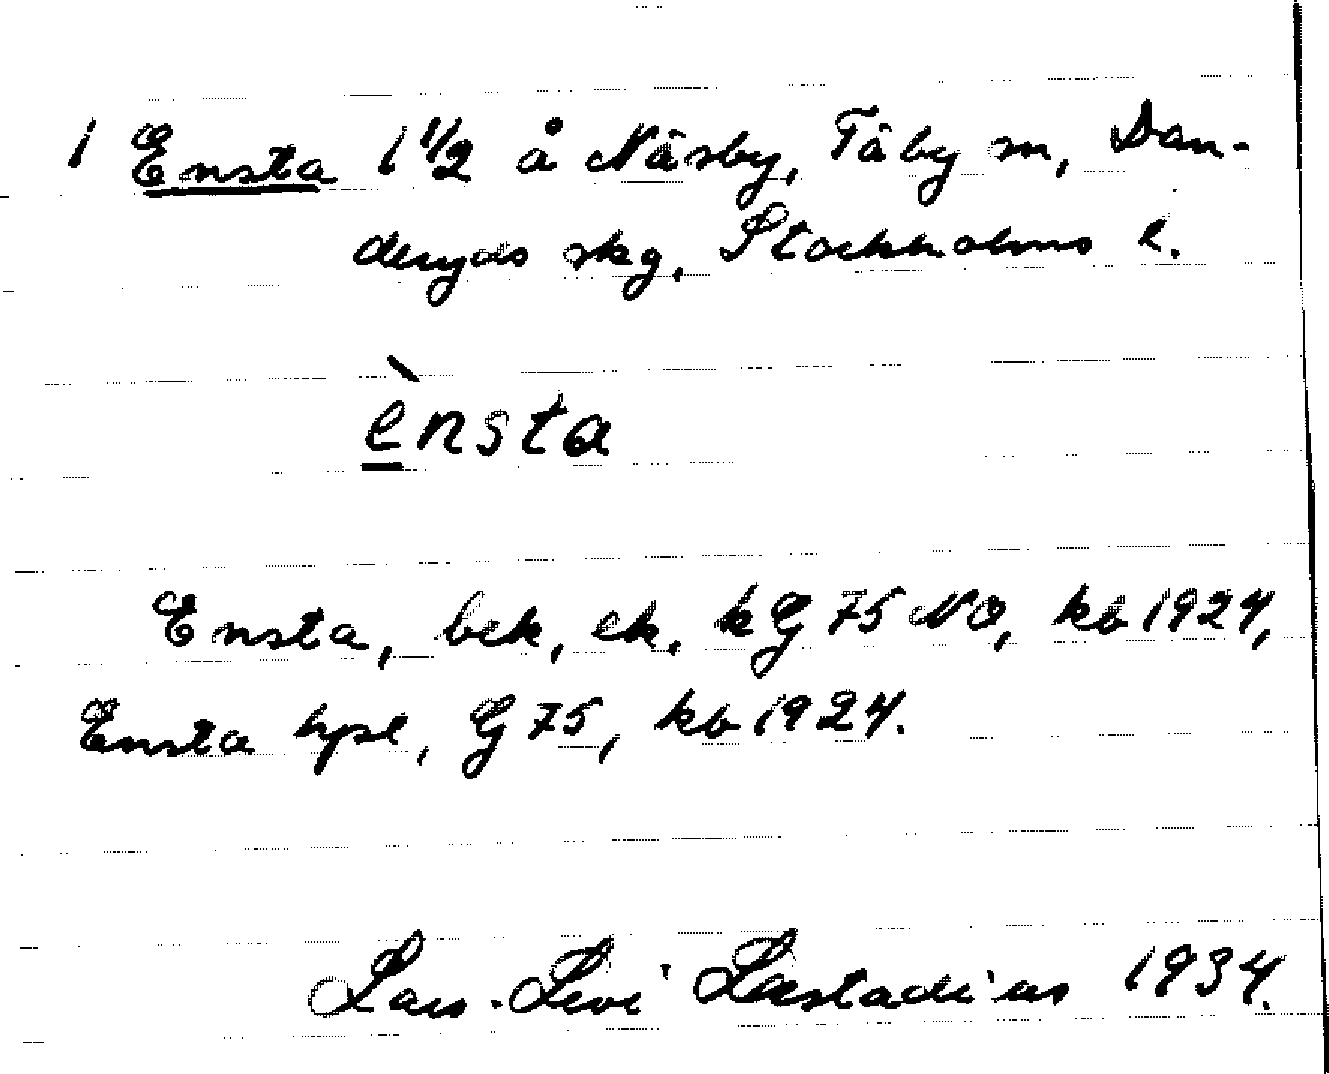 1 Ensta 1 1/2 å Näsby, Täby sn, Dan-
deryds skg, Stockholms l.
ènsta
Ensta, bek, ek. kG 75 NO, kb 1924,
Ensta hpl, G 75, kb 1924.
Lars-Levi Læstadius 1934.